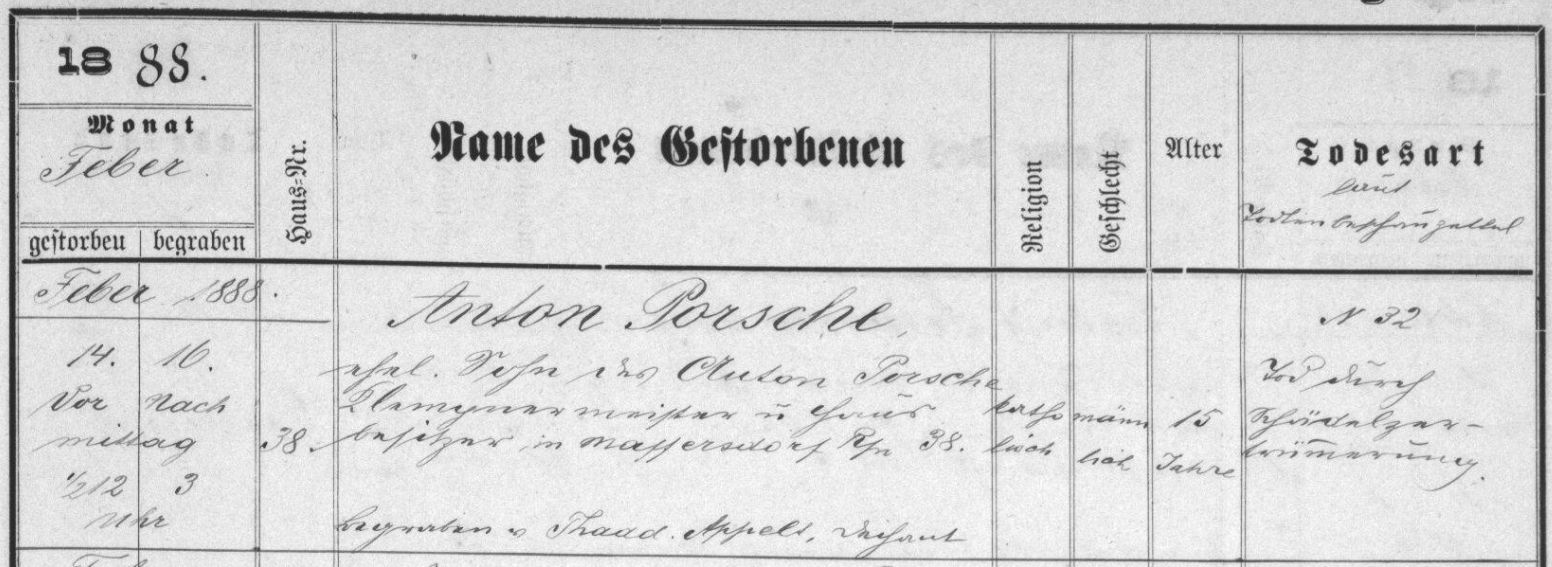 1888.
Monat
Feber
gestorben begraben
Haus-Nr.
Name des Gestorbenen
Religion
Geschlecht
Alter
Todesart
laut
Todtenbeschauzettel
Feber 1888.
14. 16.
Vor Nach
mittag
1/2 12 3
Uhr
38.
Anton Porsche,
ehel. Sohn des Anton Porsche
Klempnermeister u Haus
besitzer in Maffersdorf 38.
begraben v Thaad. Appelt, Dechant
katho
lisch
männ
lich
15
Jahre
N 32
Tod durch
Schädelzer-
trümmerung.